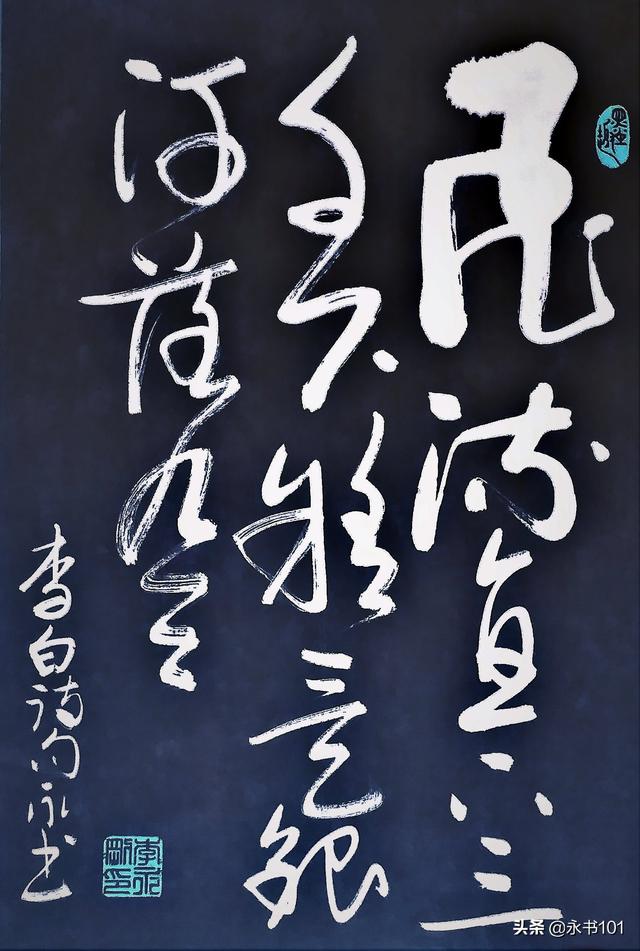 飛流直下三
千尺疑是銀
河落九天
李白诗句永书
头条 @永书101